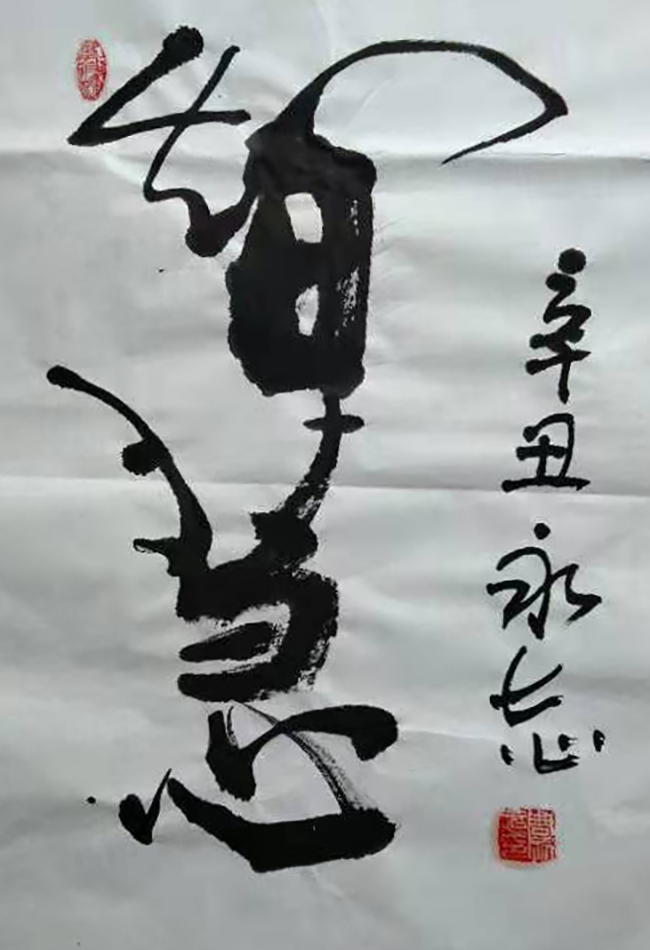 智慧
辛丑永志